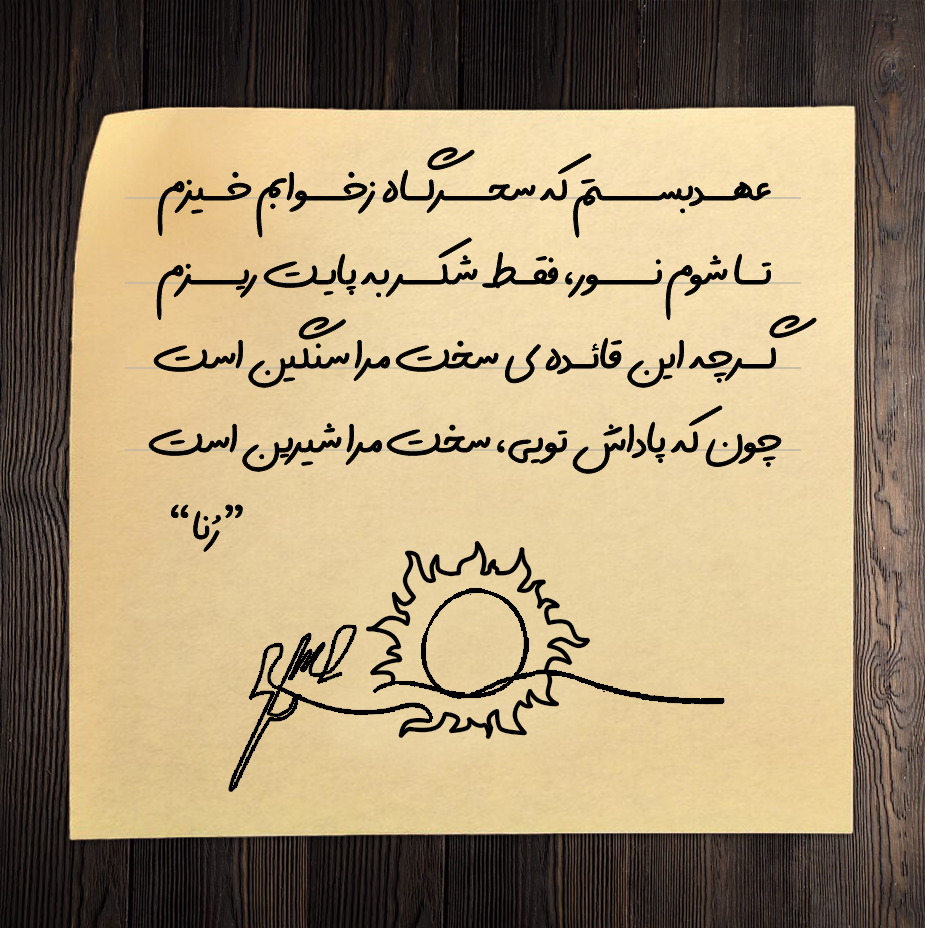 عهد بستم که سحرگاه ز خوابم خیزم
تا شوم نور، فقط شکر به پایت ریزم
گرچه این قائده ی سخت مرا سنگین است
چون که پاداش تویی، سخت مرا شیرین است
”رُنا“